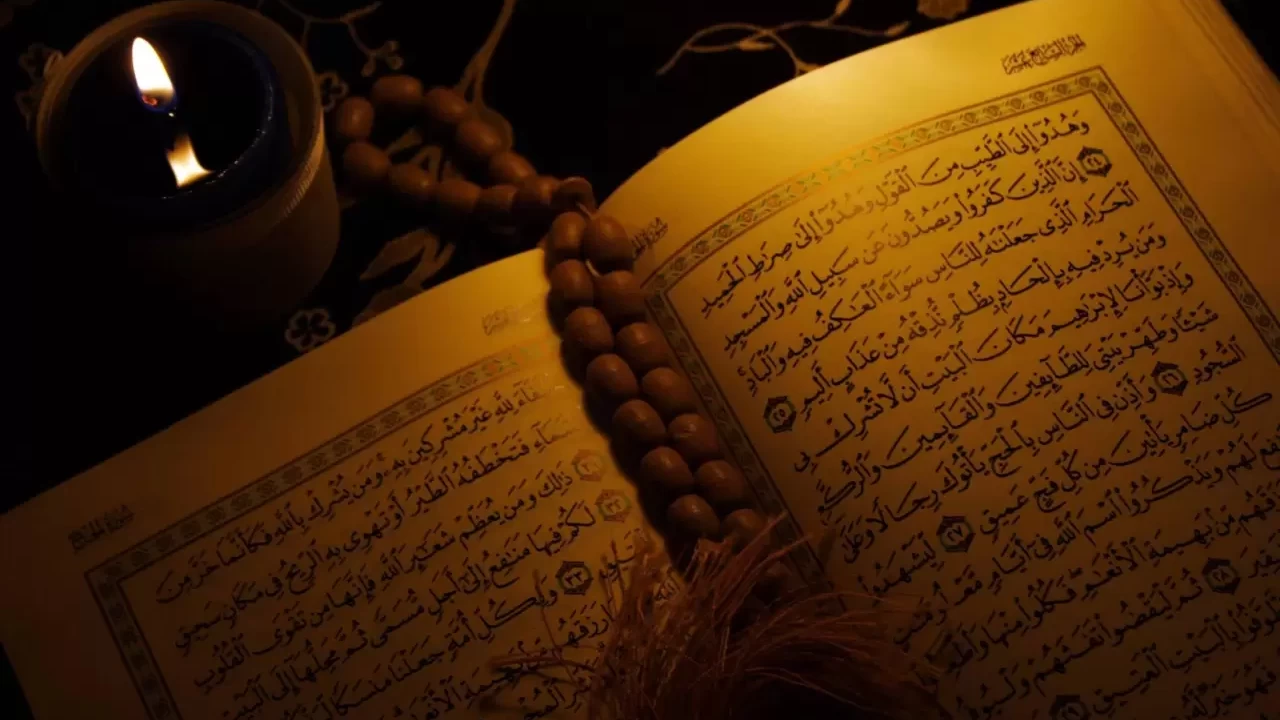 الجزء السابع عشر
وَهُدُوٓا۟ إِلَى ٱلطَّيِّبِ مِنَ ٱلْقَوْلِ وَهُدُوٓا۟ إِلَىٰ صِرَٰطِ ٱلْحَمِيدِ
٢٤ إِنَّ ٱلَّذِينَ كَفَرُوا۟ وَيَصُدُّونَ عَن سَبِيلِ ٱللَّهِ وَٱلْمَسْجِدِ
ٱلْحَرَامِ ٱلَّذِى جَعَلْنَٰهُ لِلنَّاسِ سَوَآءً ٱلْعَٰكِفُ فِيهِ وَٱلْبَادِ
وَمَن يُرِدْ فِيهِ بِإِلْحَادٍ بِظُلْمٍ نُّذِقْهُ مِنْ عَذَابٍ أَلِيمٍ ٢٥
وَإِذْ بَوَّأْنَا لِإِبْرَٰهِيمَ مَكَانَ ٱلْبَيْتِ أَن لَّا تُشْرِكْ بِى
شَيْـًٔا وَطَهِّرْ بَيْتِىَ لِلطَّآئِفِينَ وَٱلْقَآئِمِينَ وَٱلرُّكَّعِ
ٱلسُّجُودِ ٢٦ وَأَذِّن فِى ٱلنَّاسِ بِٱلْحَجِّ يَأْتُوكَ رِجَالًا وَعَلَىٰ
كُلِّ ضَامِرٍ يَأْتِينَ مِن كُلِّ فَجٍّ عَمِيقٍ ٢٧ لِّيَشْهَدُوا۟
لَهُمْ وَيَذْكُرُوا۟ ٱسْمَ ٱللَّهِ فِىٓ أَيَّامٍ
مِّنۢ بَهِيمَةِ ٱلْأَنْعَٰمِ فَكُلُوا۟ مِنْهَا
٢٨ ثُمَّ لْيَقْضُوا۟ تَفَثَهُمْ
بِٱلْبَيْتِ ٱلْعَتِيقِ ٢٩
فَهُوَ خَيْرٌ
لِلَّهِ غَيْرَ مُشْرِكِينَ بِهِۦ وَمَن يُشْرِكْ بِٱللَّهِ فَكَأَنَّمَا خَرَّ مِنَ
فَتَخْطَفُهُ ٱلطَّيْرُ أَوْ تَهْوِى بِهِ ٱلرِّيحُ فِى مَكَانٍ سَحِيقٍ
ذَٰلِكَ وَمَن يُعَظِّمْ شَعَٰٓئِرَ ٱللَّهِ فَإِنَّهَا مِن تَقْوَى ٱلْقُلُوبِ
٣٢ لَكُمْ فِيهَا مَنَٰفِعُ إِلَىٰٓ أَجَلٍ مُّسَمًّى ثُمَّ مَحِلُّهَآ إِلَى ٱلْبَيْتِ
٣٣ وَلِكُلِّ أُمَّةٍ جَعَلْنَا مَنسَكًا